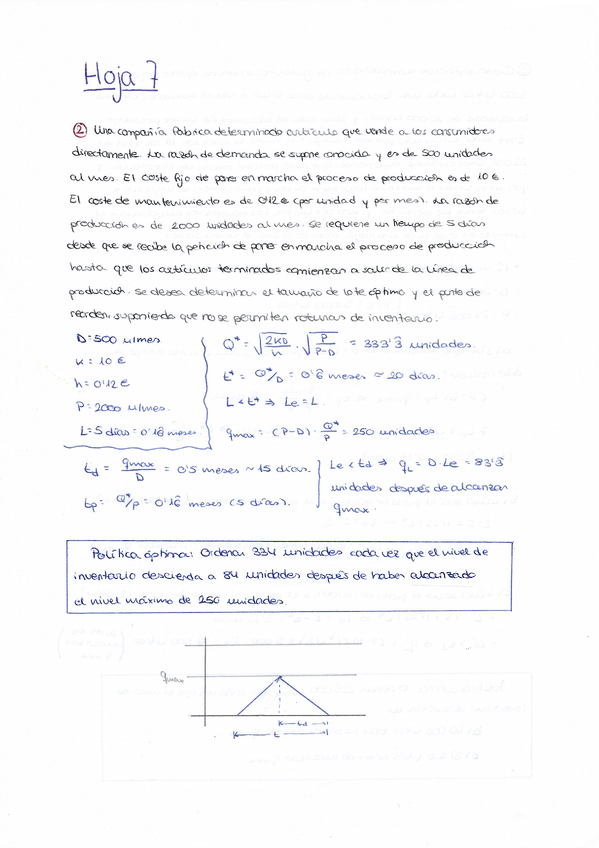 Hoja 7
② Una compañía fabrica determinado artículo que vende a los consumidores
directamente. La razón de demanda se supone conocida y es de 500 unidades
al mes. El coste fijo de poner en marcha el proceso de producción es de 10 €.
El coste de mantenimiento es de 0'12 € (por unidad y por mes). La razón de
producción es de 2000 unidades al mes. Se requiere un tiempo de 5 días
desde que se recibe la petición de poner en marcha el proceso de producción
hasta que los artículos terminados comienzan a salir de la línea de
producción. Se desea determinar el tamaño de lote óptimo y el punto de
reorden, suponiendo que no se permiten roturas de inventario.
D=500 u/mes.
K = 10 €
h = 0'12 €
P=2000 u/mes.
L=5 días = 0'16 meses
Q* = √(2KD/h) · √(P/(P-D)) = 333'3̂ unidades.
t* = Q*/D = 0'6̂ meses ≈ 20 días.
L < t* ⇒ Le = L.
qmax = (P-D) · Q*/P = 250 unidades
td = qmax/D = 0'5 meses ~ 15 días.
tp = Q*/P = 0'16̂ meses (5 días).
Le < td ⇒ qL = D·Le = 83'3̂
unidades después de alcanzar
qmax.
Política óptima: Ordenar 334 unidades cada vez que el nivel de
inventario descienda a 84 unidades después de haber alcanzado
el nivel máximo de 250 unidades.
qmax
td
t